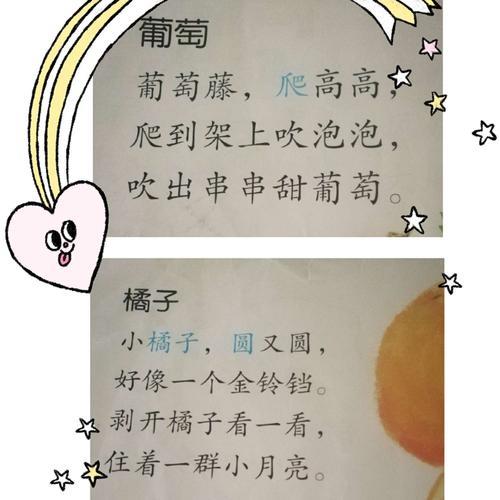 葡萄
葡萄藤，爬高高，
爬到架上吹泡泡，
吹出串串甜葡萄。
橘子
小橘子，圆又圆，
好像一个金铃铛。
剥开橘子看一看，
住着一群小月亮。